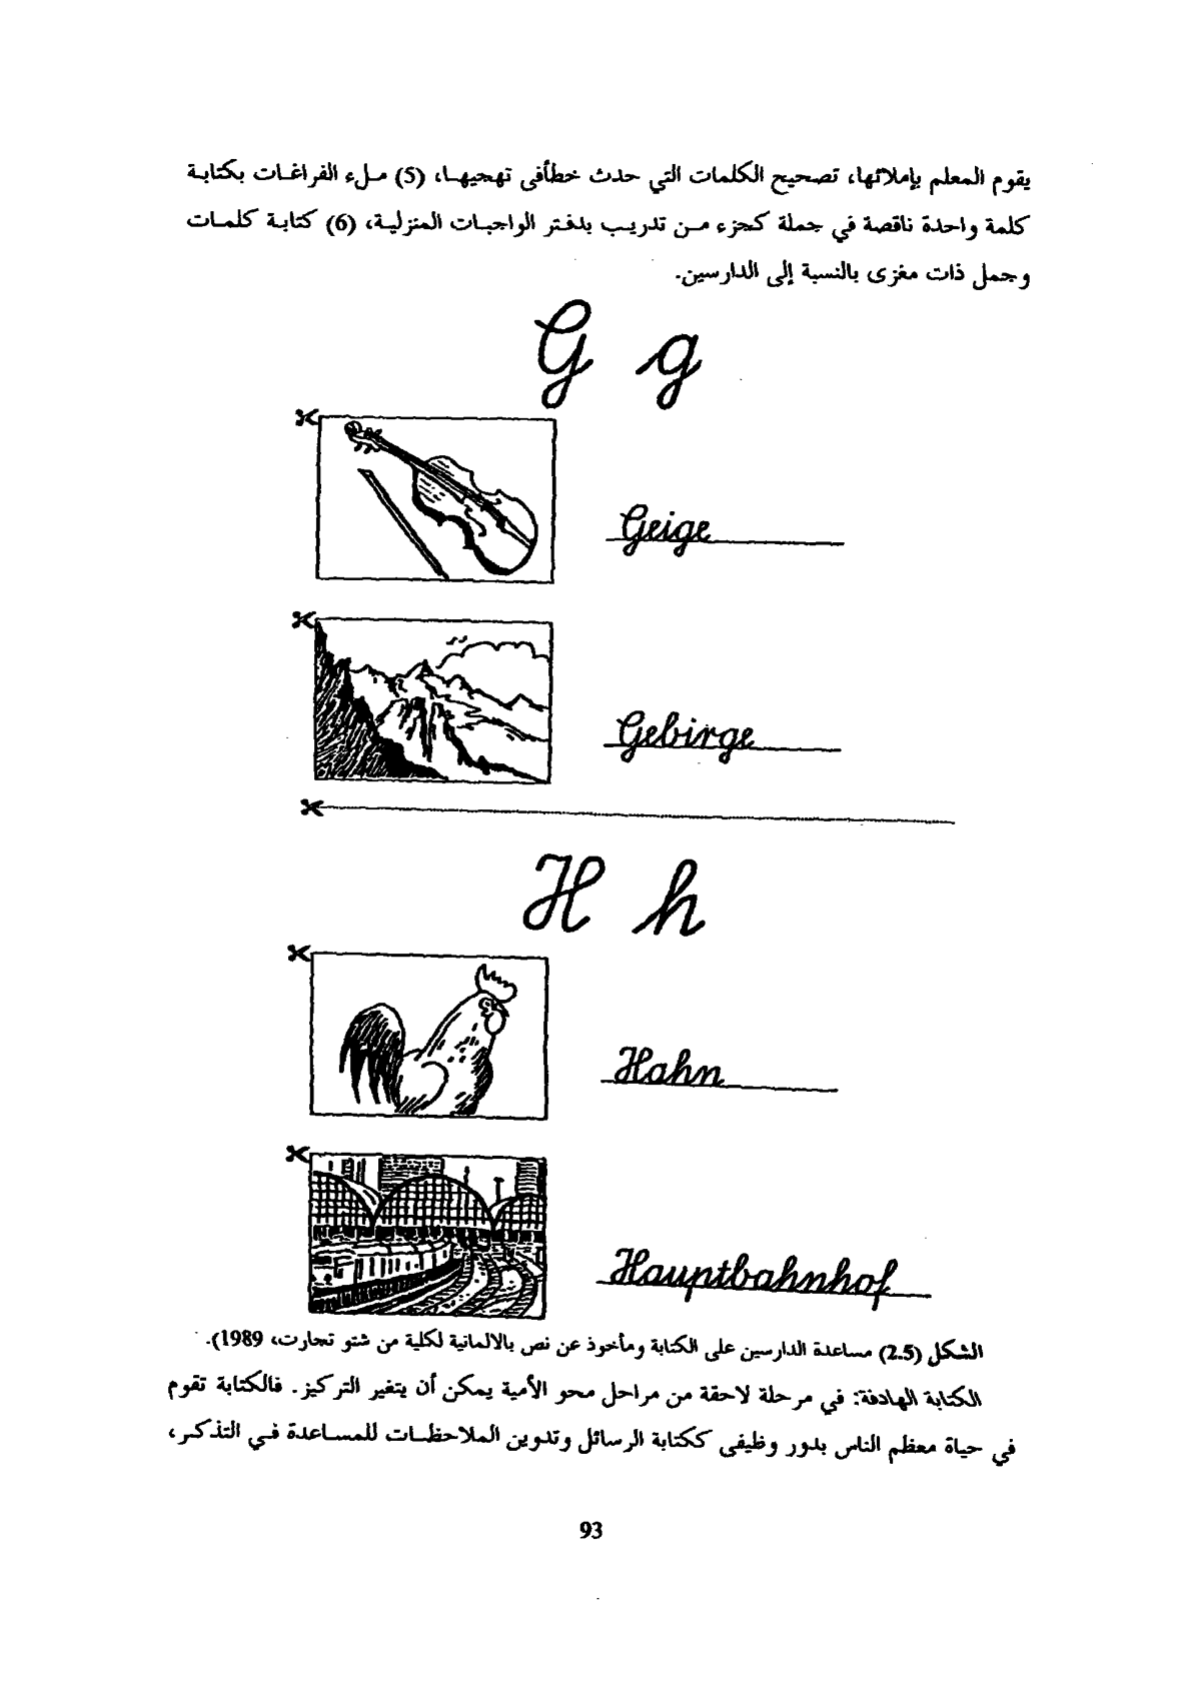 يقوم المعلم بإملائها، تصحيح الكلمات التي حدث خطأفى تهجيهـا، (5) مـلء الفراغـات بكتابـة
كلمة واحدة ناقصة في جملة كجزء مـن تدريـب بدفـتر الواجبـات المنزليـة، (6) كتابـة كلمـات
وجمل ذات مغزى بالنسبة إلى الدارسين.
G g
Geige
Gebirge
H h
Hahn
Hauptbahnhof
الشكل (2.5) مساعدة الدارسين على الكتابة ومأخوذ عن نص بالالمانية لكلية من شتو تجارت، 1989).
الكتابة الهادفة: في مرحلة لاحقة من مراحل محو الأمية يمكن أن يتغير التركيز. فالكتابة تقوم
في حياة معظم الناس بدور وظيفى ككتابة الرسائل وتدوين الملاحظـات للمسـاعدة فـي التذكـر،
93